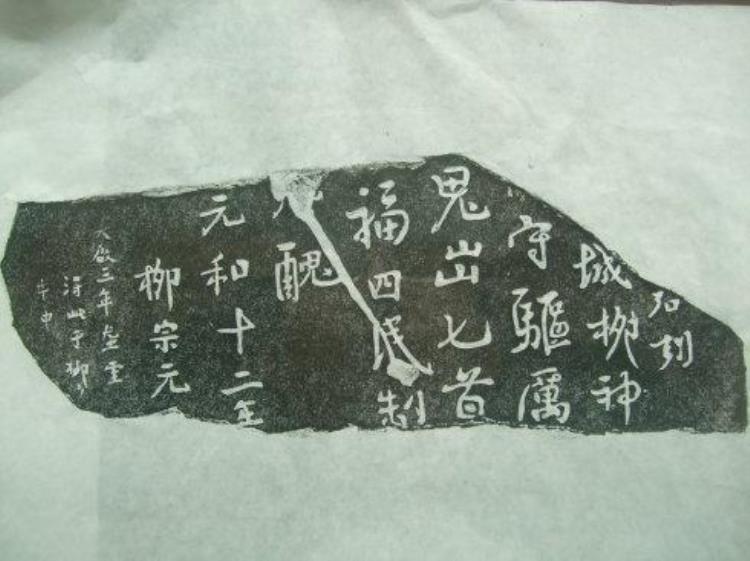 刻
城柳神
守驅厲
鬼出匕首
福四民制
醜
元和十二年
柳宗元
天啟三年
得此于柳
井中